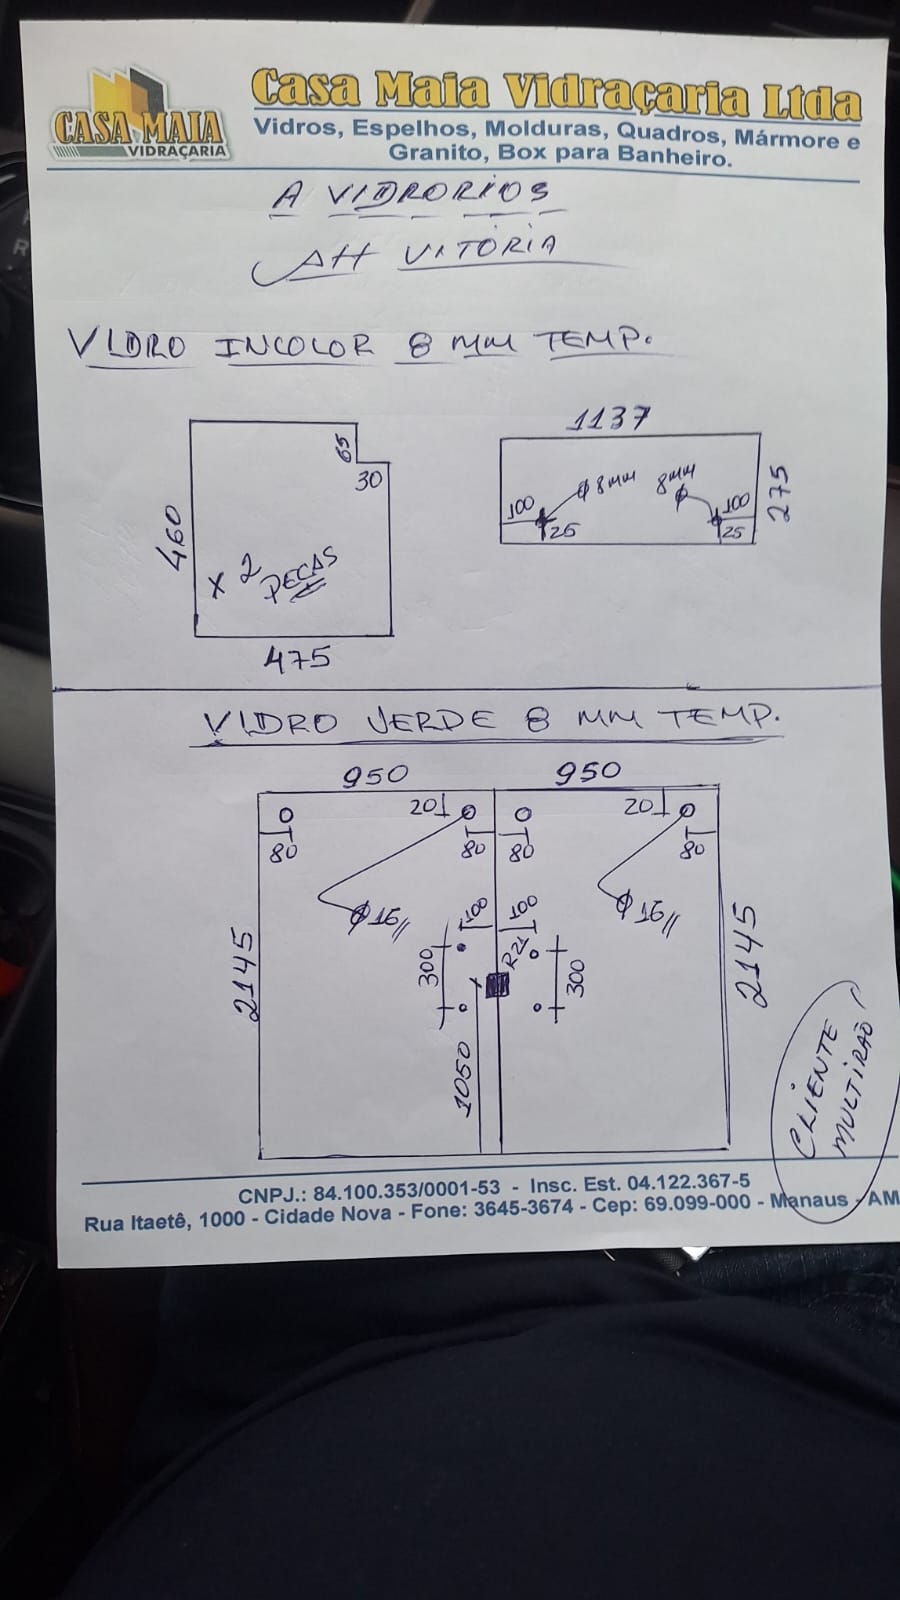 CASA MAIA
VIDRAÇARIA
Casa Maia Vidraçaria Ltda
Vidros, Espelhos, Molduras, Quadros, Mármore e
Granito, Box para Banheiro.
A VIDRORIOS
Att VITÓRIA
VIDRO INCOLOR 8 MM TEMP.
65
30
460
x 2 PEÇAS
475
1137
275
Ø 8MM
8MM Ø
100
25
100
25
VIDRO VERDE 8 MM TEMP.
950
950
20
20
80
80
80
80
Ø 16//
Ø 16//
100
100
R21
300
300
2145
2145
1050
CLIENTE
MULTIRÃO
CNPJ.: 84.100.353/0001-53 - Insc. Est. 04.122.367-5
Rua Itaetê, 1000 - Cidade Nova - Fone: 3645-3674 - Cep: 69.099-000 - Manaus - AM